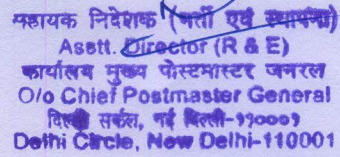 सहायक निदेशक (भर्ती एवं स्थापना)
Asstt. Director (R & E)
कार्यालय मुख्य पोस्टमास्टर जनरल
O/o Chief Postmaster General
दिल्ली सर्कल, नई दिल्ली-११०००१
Delhi Circle, New Delhi-110001